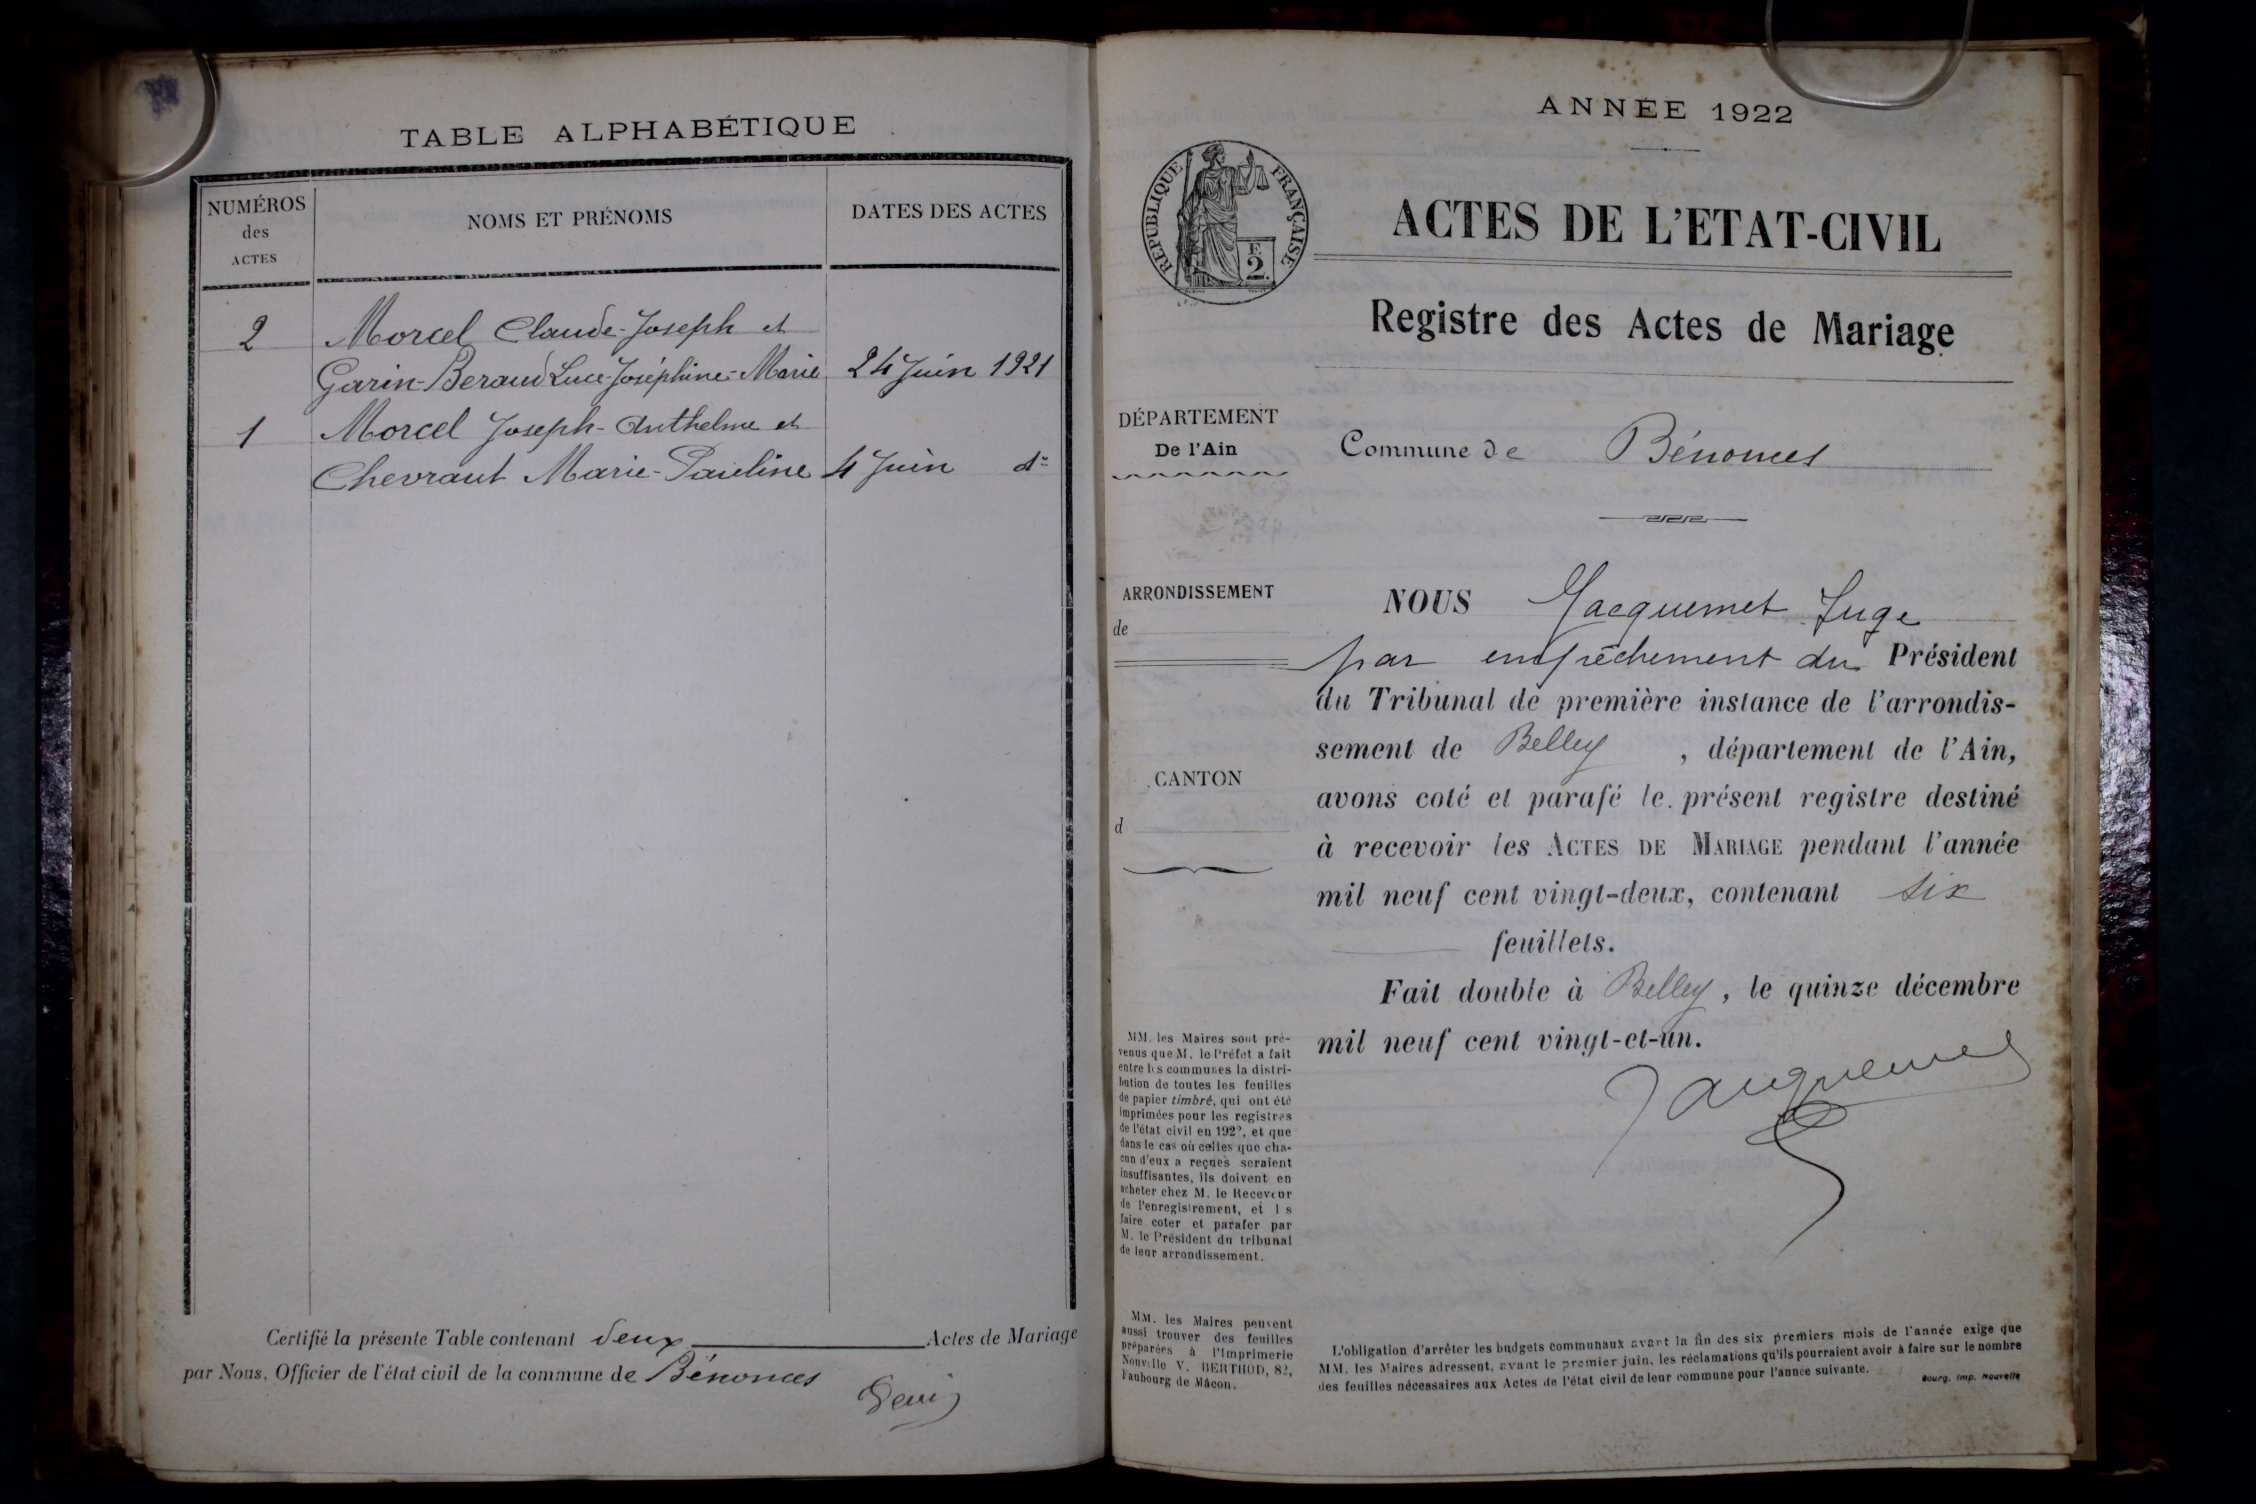 TABLE ALPHABÉTIQUE
NUMÉROS
des
ACTES
NOMS ET PRÉNOMS
DATES DES ACTES
2 Morcel Claude-Joseph et
Garin-Beraud Luce-Joséphine-Marie 24 Juin 1921
1 Morcel Joseph-Anthelme et
Chevraut Marie-Pauline 4 Juin do
Certifié la présente Table contenant deux Actes de Mariage
par Nous, Officier de l'état civil de la commune de Bénonces
ANNÉE 1922
RÉPUBLIQUE FRANÇAISE
F
2
ACTES DE L'ETAT-CIVIL
Registre des Actes de Mariage
DÉPARTEMENT
De l'Ain
Commune de Bénonces
ARRONDISSEMENT
de
CANTON
d
NOUS Jacquemet Juge
par empêchement du Président
du Tribunal de première instance de l'arrondis-
sement de Belley, département de l'Ain,
avons coté et parafé le présent registre destiné
à recevoir les ACTES DE MARIAGE pendant l'année
mil neuf cent vingt-deux, contenant six
feuillets.
Fait double à Belley, le quinze décembre
mil neuf cent vingt-et-un.
Jacquemet
MM. les Maires sont pré-
venus que M. le Préfet a fait
entre les communes la distri-
bution de toutes les feuilles
de papier timbré, qui ont été
imprimées pour les registres
de l'état civil en 1922, et que
dans le cas où celles que cha-
cun d'eux a reçues seraient
insuffisantes, ils doivent en
acheter chez M. le Receveur
de l'enregistrement, et l s
faire coter et parafer par
M. le Président du tribunal
de leur arrondissement.
MM. les Maires peuvent
aussi trouver des feuilles
préparées à l'Imprimerie
Nouvelle V. BERTHOD, 82,
Faubourg de Mâcon.
L'obligation d'arrêter les budgets communaux avant la fin des six premiers mois de l'année exige que
MM. les Maires adressent, avant le premier juin, les réclamations qu'ils pourraient avoir à faire sur le nombre
des feuilles nécessaires aux Actes de l'état civil de leur commune pour l'année suivante.
Bourg. Imp. Nouvelle